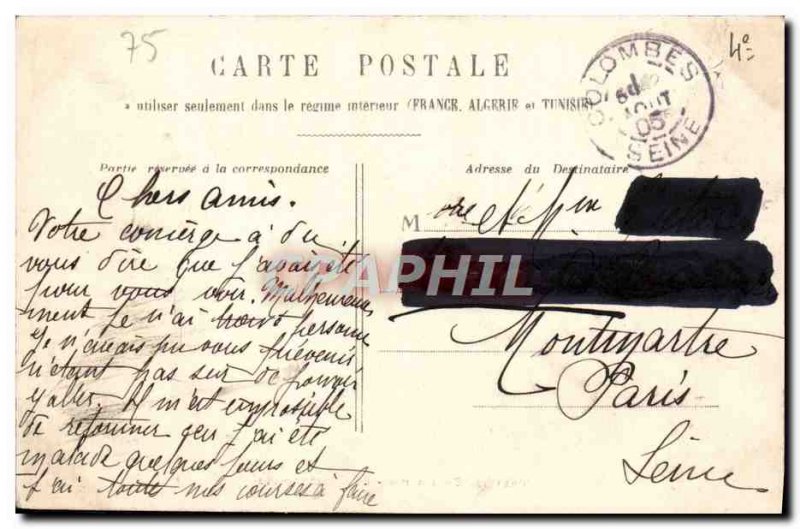 75
4e
CARTE POSTALE
à utiliser seulement dans le régime intérieur (FRANCE, ALGERIE et TUNISIE)
COLOMBES
AOUT
05
SEINE
Partie réservée à la correspondance
Adresse du Destinataire
Chers amis.
Votre concierge a du
vous dire que j'avais été
pour vous voir. Malheureuse
ment je n'ai trouvé personne
Je n'avais pu vous prévenir
n'étant pas sur de pouvoir
y aller. Il m'est impossible
de retourner car j'ai été
malade quelques jours et
j'ai toute mes courses à faire
M
CPAPHIL
Montmartre
Paris
Seine